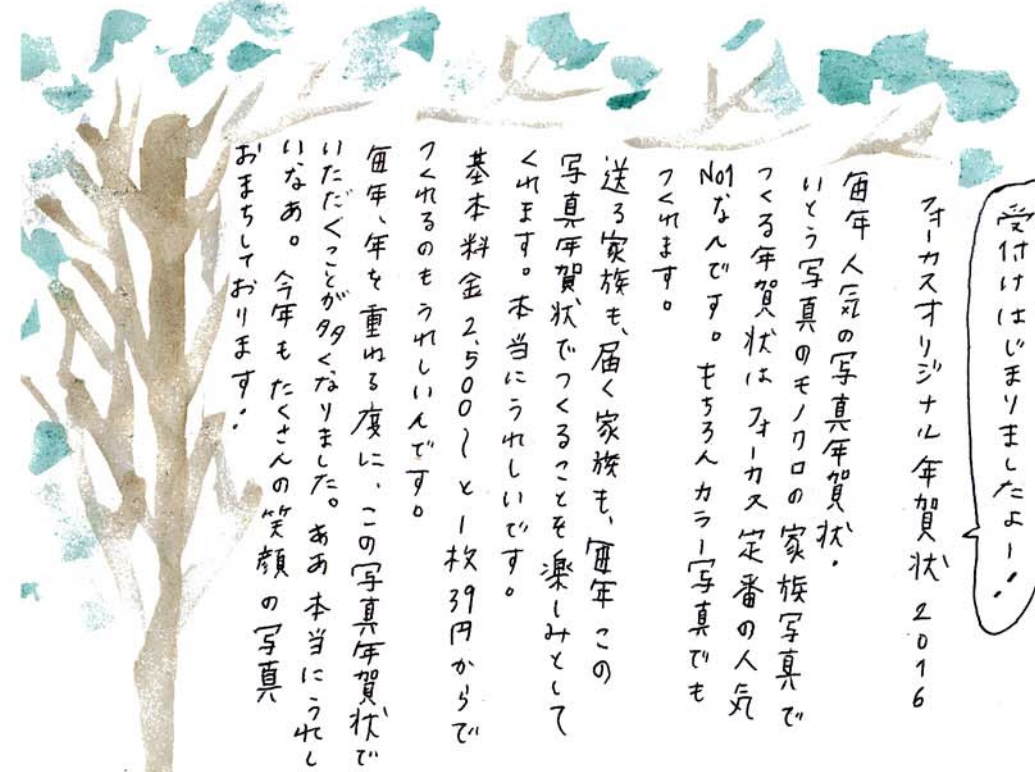 受付けはじまりましたよー！
フォーカスオリジナル年賀状2016
毎年人気の写真年賀状。
いとう写真のモノクロの家族写真で
つくる年賀状はフォーカス定番の人気
No1なんです。もちろんカラー写真でも
つくれます。
送る家族も、届く家族も、毎年この
写真年賀状でつくることを楽しみとして
くれます。本当にうれしいです。
基本料金2,500～と1枚39円からで
つくれるのもうれしいんです。
毎年、年を重ねる度に、この写真年賀状で
いただくことが多くなりました。ああ本当にうれし
いなあ。今年もたくさんの笑顔の写真
おまちしております。